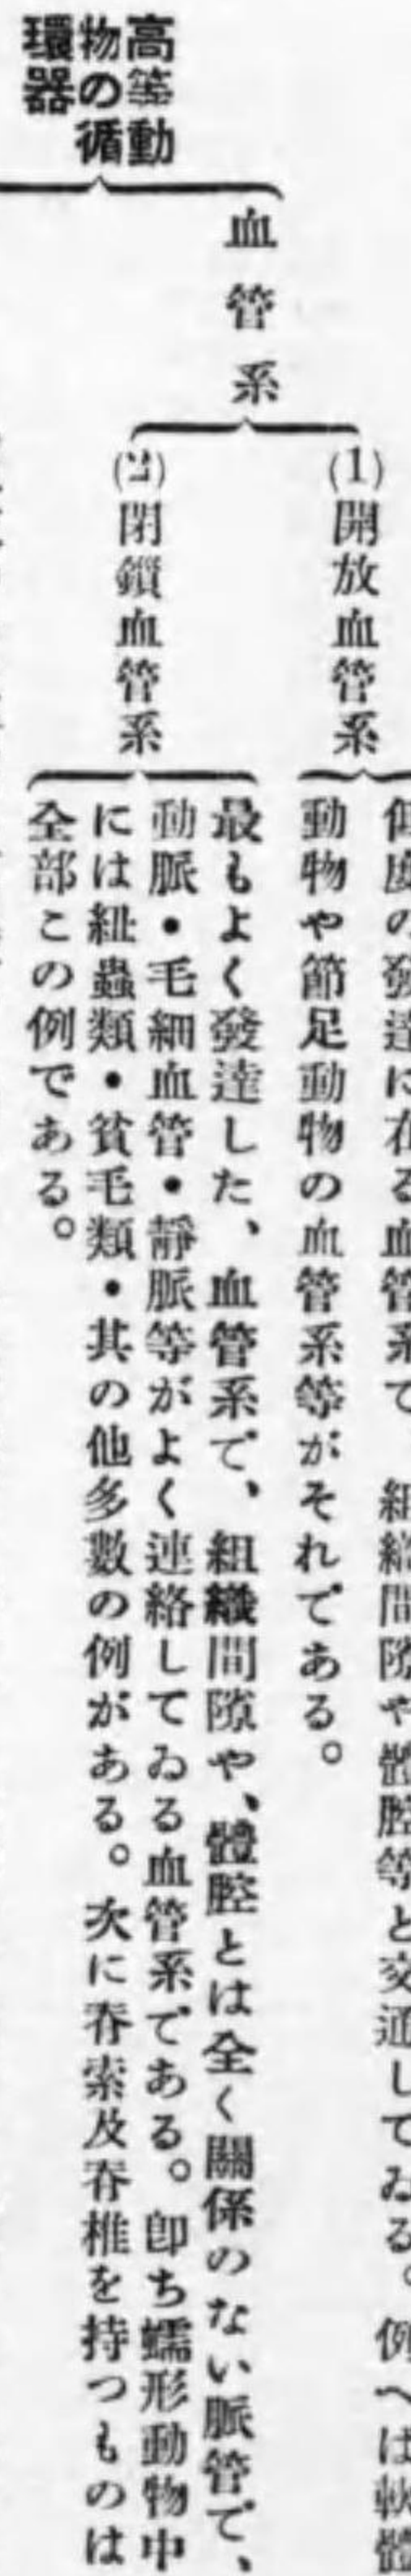 高等動
物の循
環器
血管系
(1)開放血管系
低度の發達に在る血管系で 組織間隙や體腔等と交通してゐる。例へば軟體
動物や節足動物の血管系等がそれである。
(2)閉鎖血管系
最もよく發達した、血管系で、組織間隙や、體腔とは全く關係のない脈管で、
動脈・毛細血管・靜脈等がよく連絡してゐる血管系である。卽ち蠕形動物中
には紐蟲類・貧毛類・其の他多數の例がある。次に脊索及脊椎を持つものは
全部この例である。